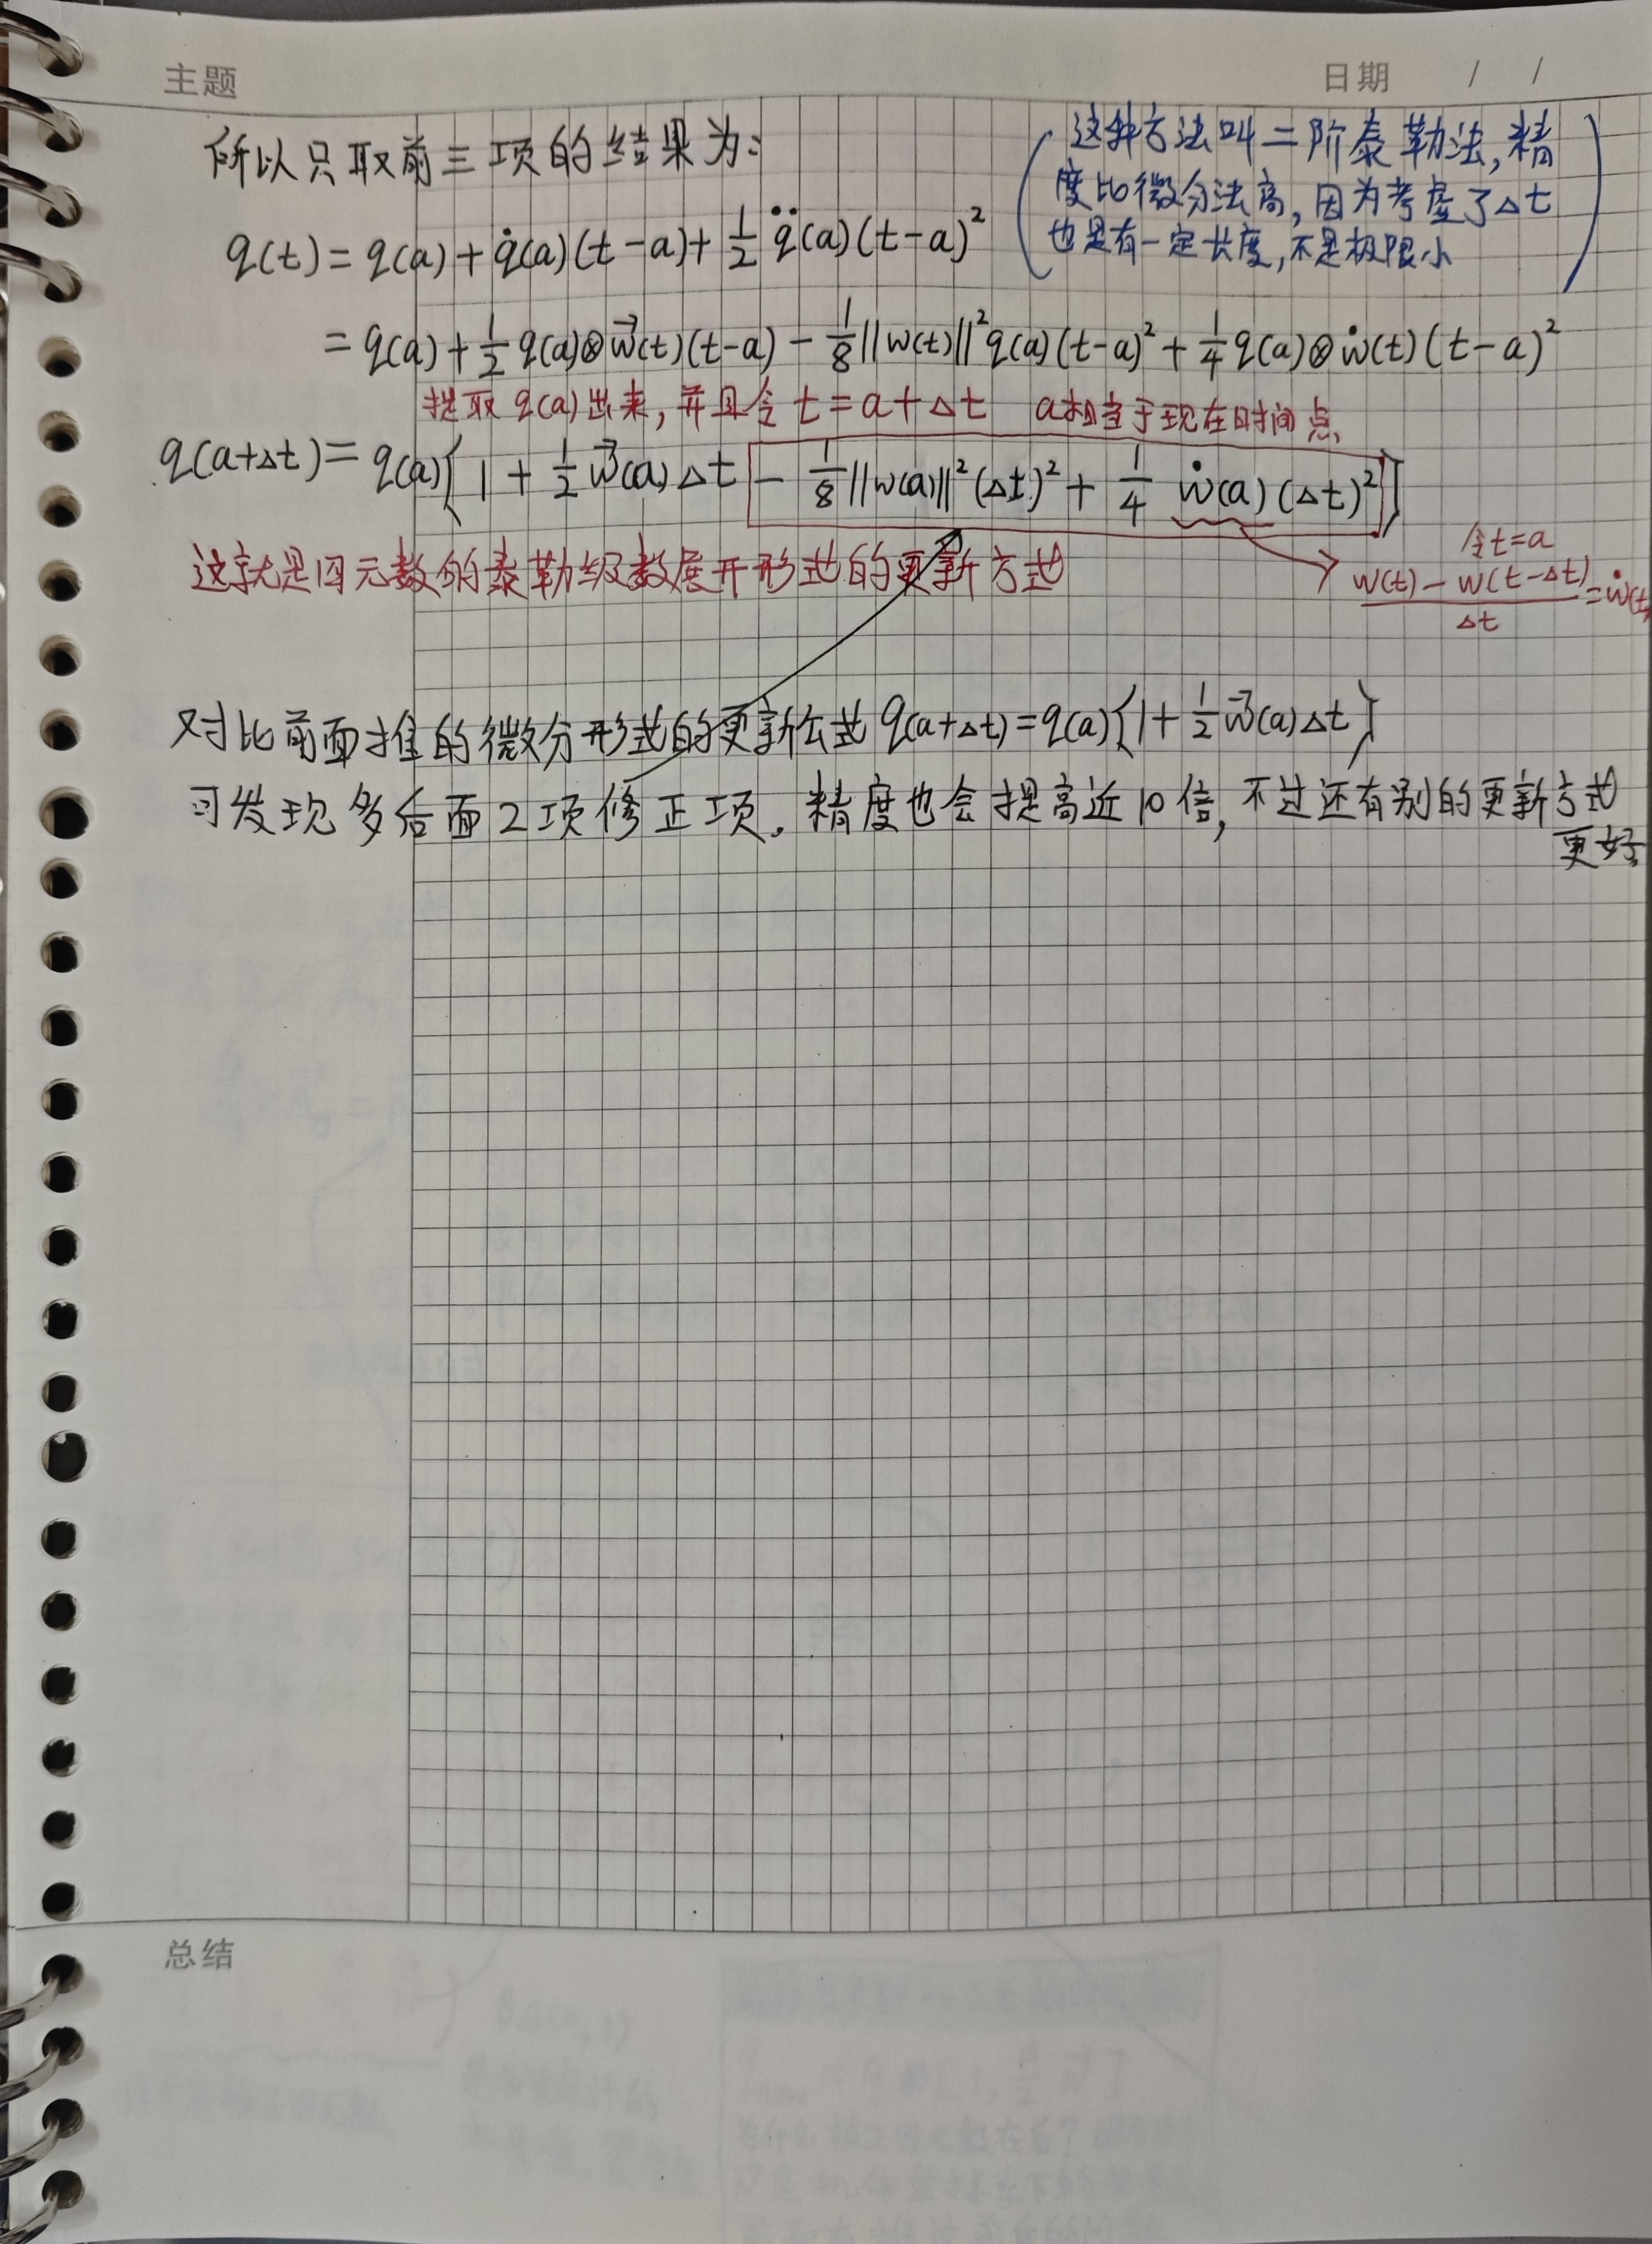 主题
日期 / /
所以只取前三项的结果为:
(这种方法叫二阶泰勒法,精
度比微分法高,因为考虑了Δt
也是有一定长度,不是极限小)
q(t) = q(a) + q̇(a)(t-a) + 1/2 q̈(a)(t-a)²
= q(a) + 1/2 q(a)⊗w⃗(t)(t-a) - 1/8||w(t)||²q(a)(t-a)² + 1/4 q(a)⊗ẇ(t)(t-a)²
提取q(a)出来,并且令t=a+Δt a相当于现在时间点
q(a+Δt) = q(a){1 + 1/2 w⃗(a)Δt - 1/8||w(a)||²(Δt)² + 1/4 ẇ(a)(Δt)²}
令t=a
(w(t) - w(t-Δt))/Δt = ẇ(t)
这就是四元数的泰勒级数展开形式的更新方式
对比前面推的微分形式的更新公式 q(a+Δt)=q(a){1+1/2 w⃗(a)Δt}
可发现多后面2项修正项。精度也会提高近10倍,不过还有别的更新方式
更好
总结